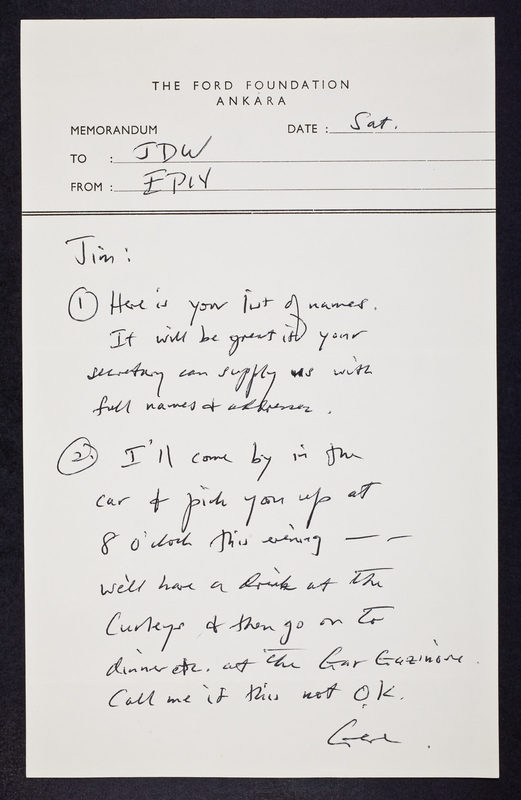 THE FORD FOUNDATION
ANKARA
MEMORANDUM DATE : Sat.
TO : JDW
FROM :
Jim:
① Here is your list of names.
It will be great if your
secretary can supply us with
full names & addresses.
② I'll come by in the
car & pick you up at
8 o'clock this evening — —
we'll have a drink at the
Curleys & then go on to
dinner etc. at the Gar Gazinosu.
Call me if this not OK.
Gene